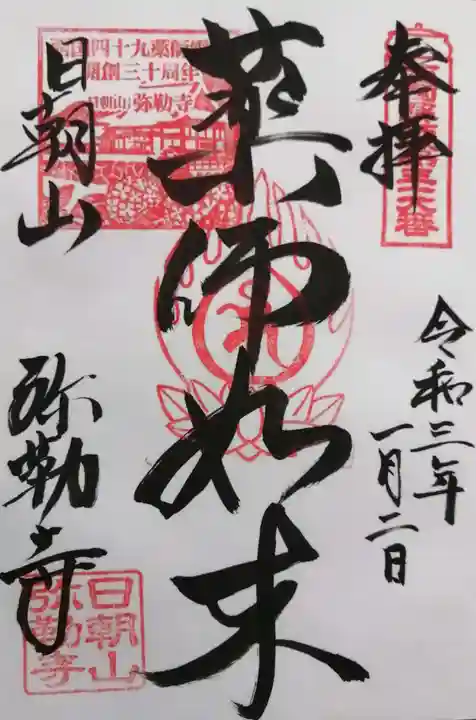 奉拝
令和三年
一月二日
薬師如来
日朝山
弥勒寺
四国四十九薬師霊場
開創三十周年
日朝山 弥勒寺
日朝山
弥勒寺